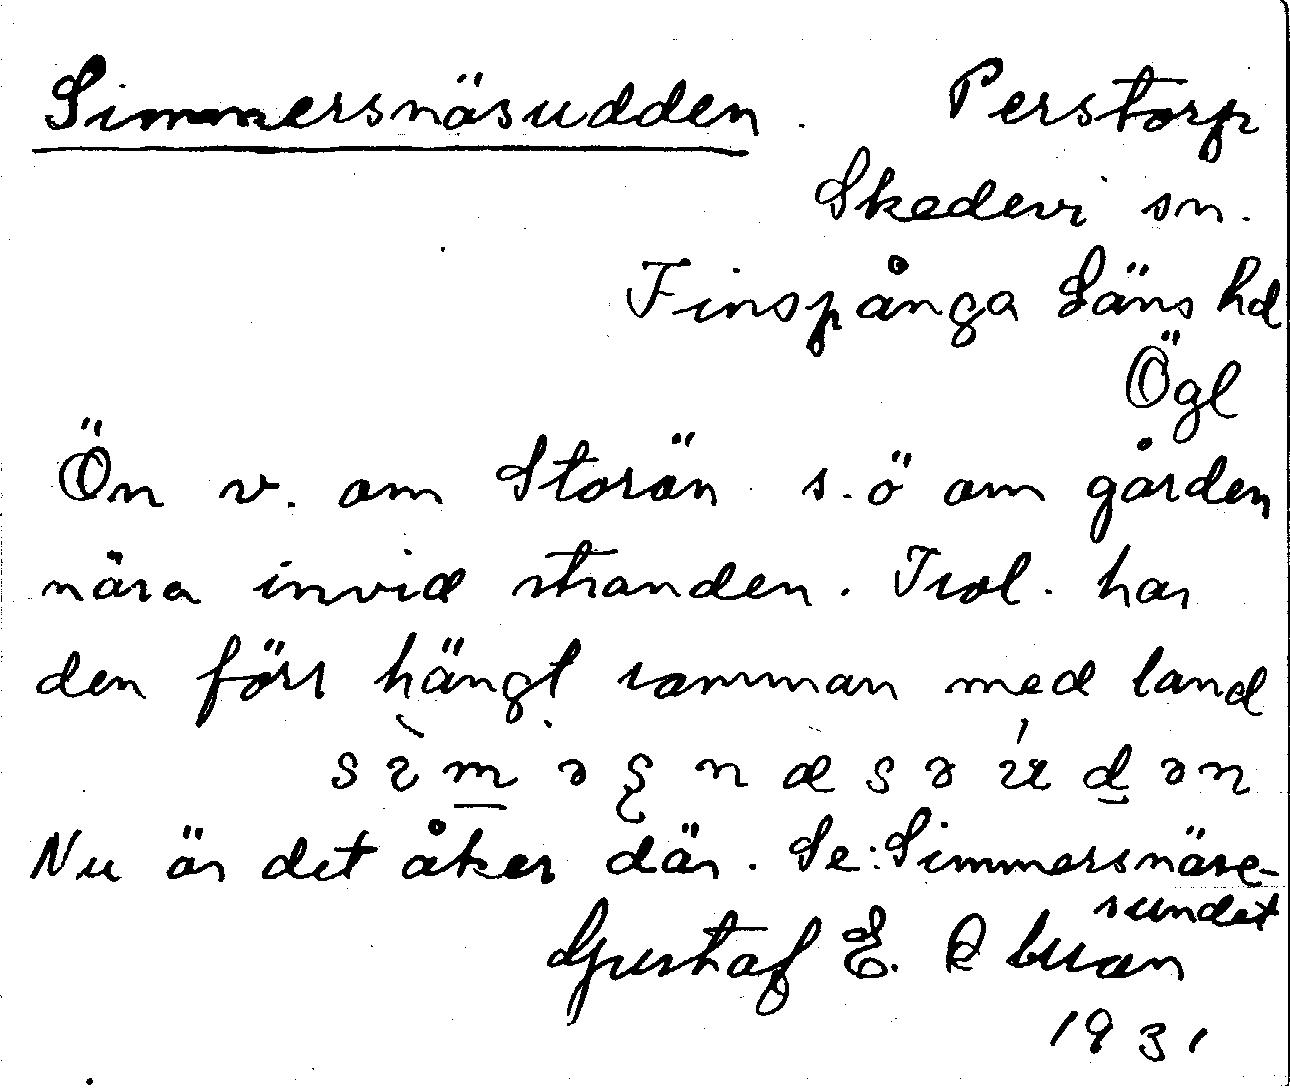 Simmersnäsudden. Perstorp
Skedevi sn.
Finspånga Läns hd
Ögl
Ön v. om Storön s.ö om gården
nära invid stranden. Trol. har
den förr hängt samman med land
Nu är det åker där. Se: Simmersnäse-
sundet
Gustaf E.
1931